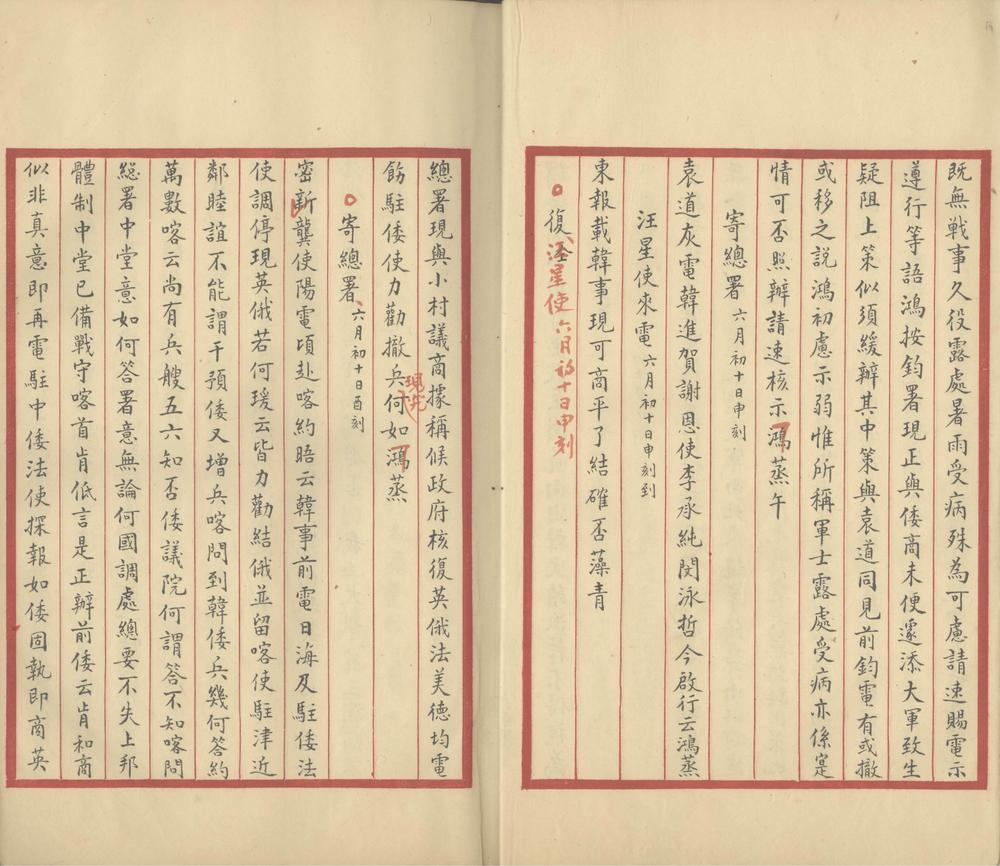 既無戰事久役露處暑雨受病殊為可慮請速賜電示
遵行等語鴻按鈞署現正與倭商未便遽添大軍致生
疑阻上策似須緩辦其中策與袁道同見前鈞電有或撤
或移之說鴻初慮示弱惟所稱軍士露處受病亦係寔
情可否照辦請速核示鴻蒸午
寄總署 六月初十日申刻
袁道灰電韓進賀謝恩使李承純閔泳哲今啟行云鴻蒸
汪星使來電 六月初十日申刻到
東報載韓事現可商平了結確否藻青
復汪星使 六月初十日申刻
總署現與小村議商據稱候政府核復英俄法美德均電
飭駐倭使力勸撤兵現究何如鴻蒸
寄總署 六月初十日酉刻
密新龔使陽電頃赴喀約晤云韓事前電日海及駐倭法
使調停現英俄若何瑗云皆力勸結俄並留喀使駐津近
鄰睦誼不能謂干預倭又增兵喀問到韓倭兵幾何答約
萬數喀云尚有兵艘五六知否倭議院何謂答不知喀問
總署中堂意如何答署意無論何國調處總要不失上邦
體制中堂已備戰守喀首肯低言是正辦前倭云肯和商
似非真意即再電駐中倭法使探報如倭固執即商英